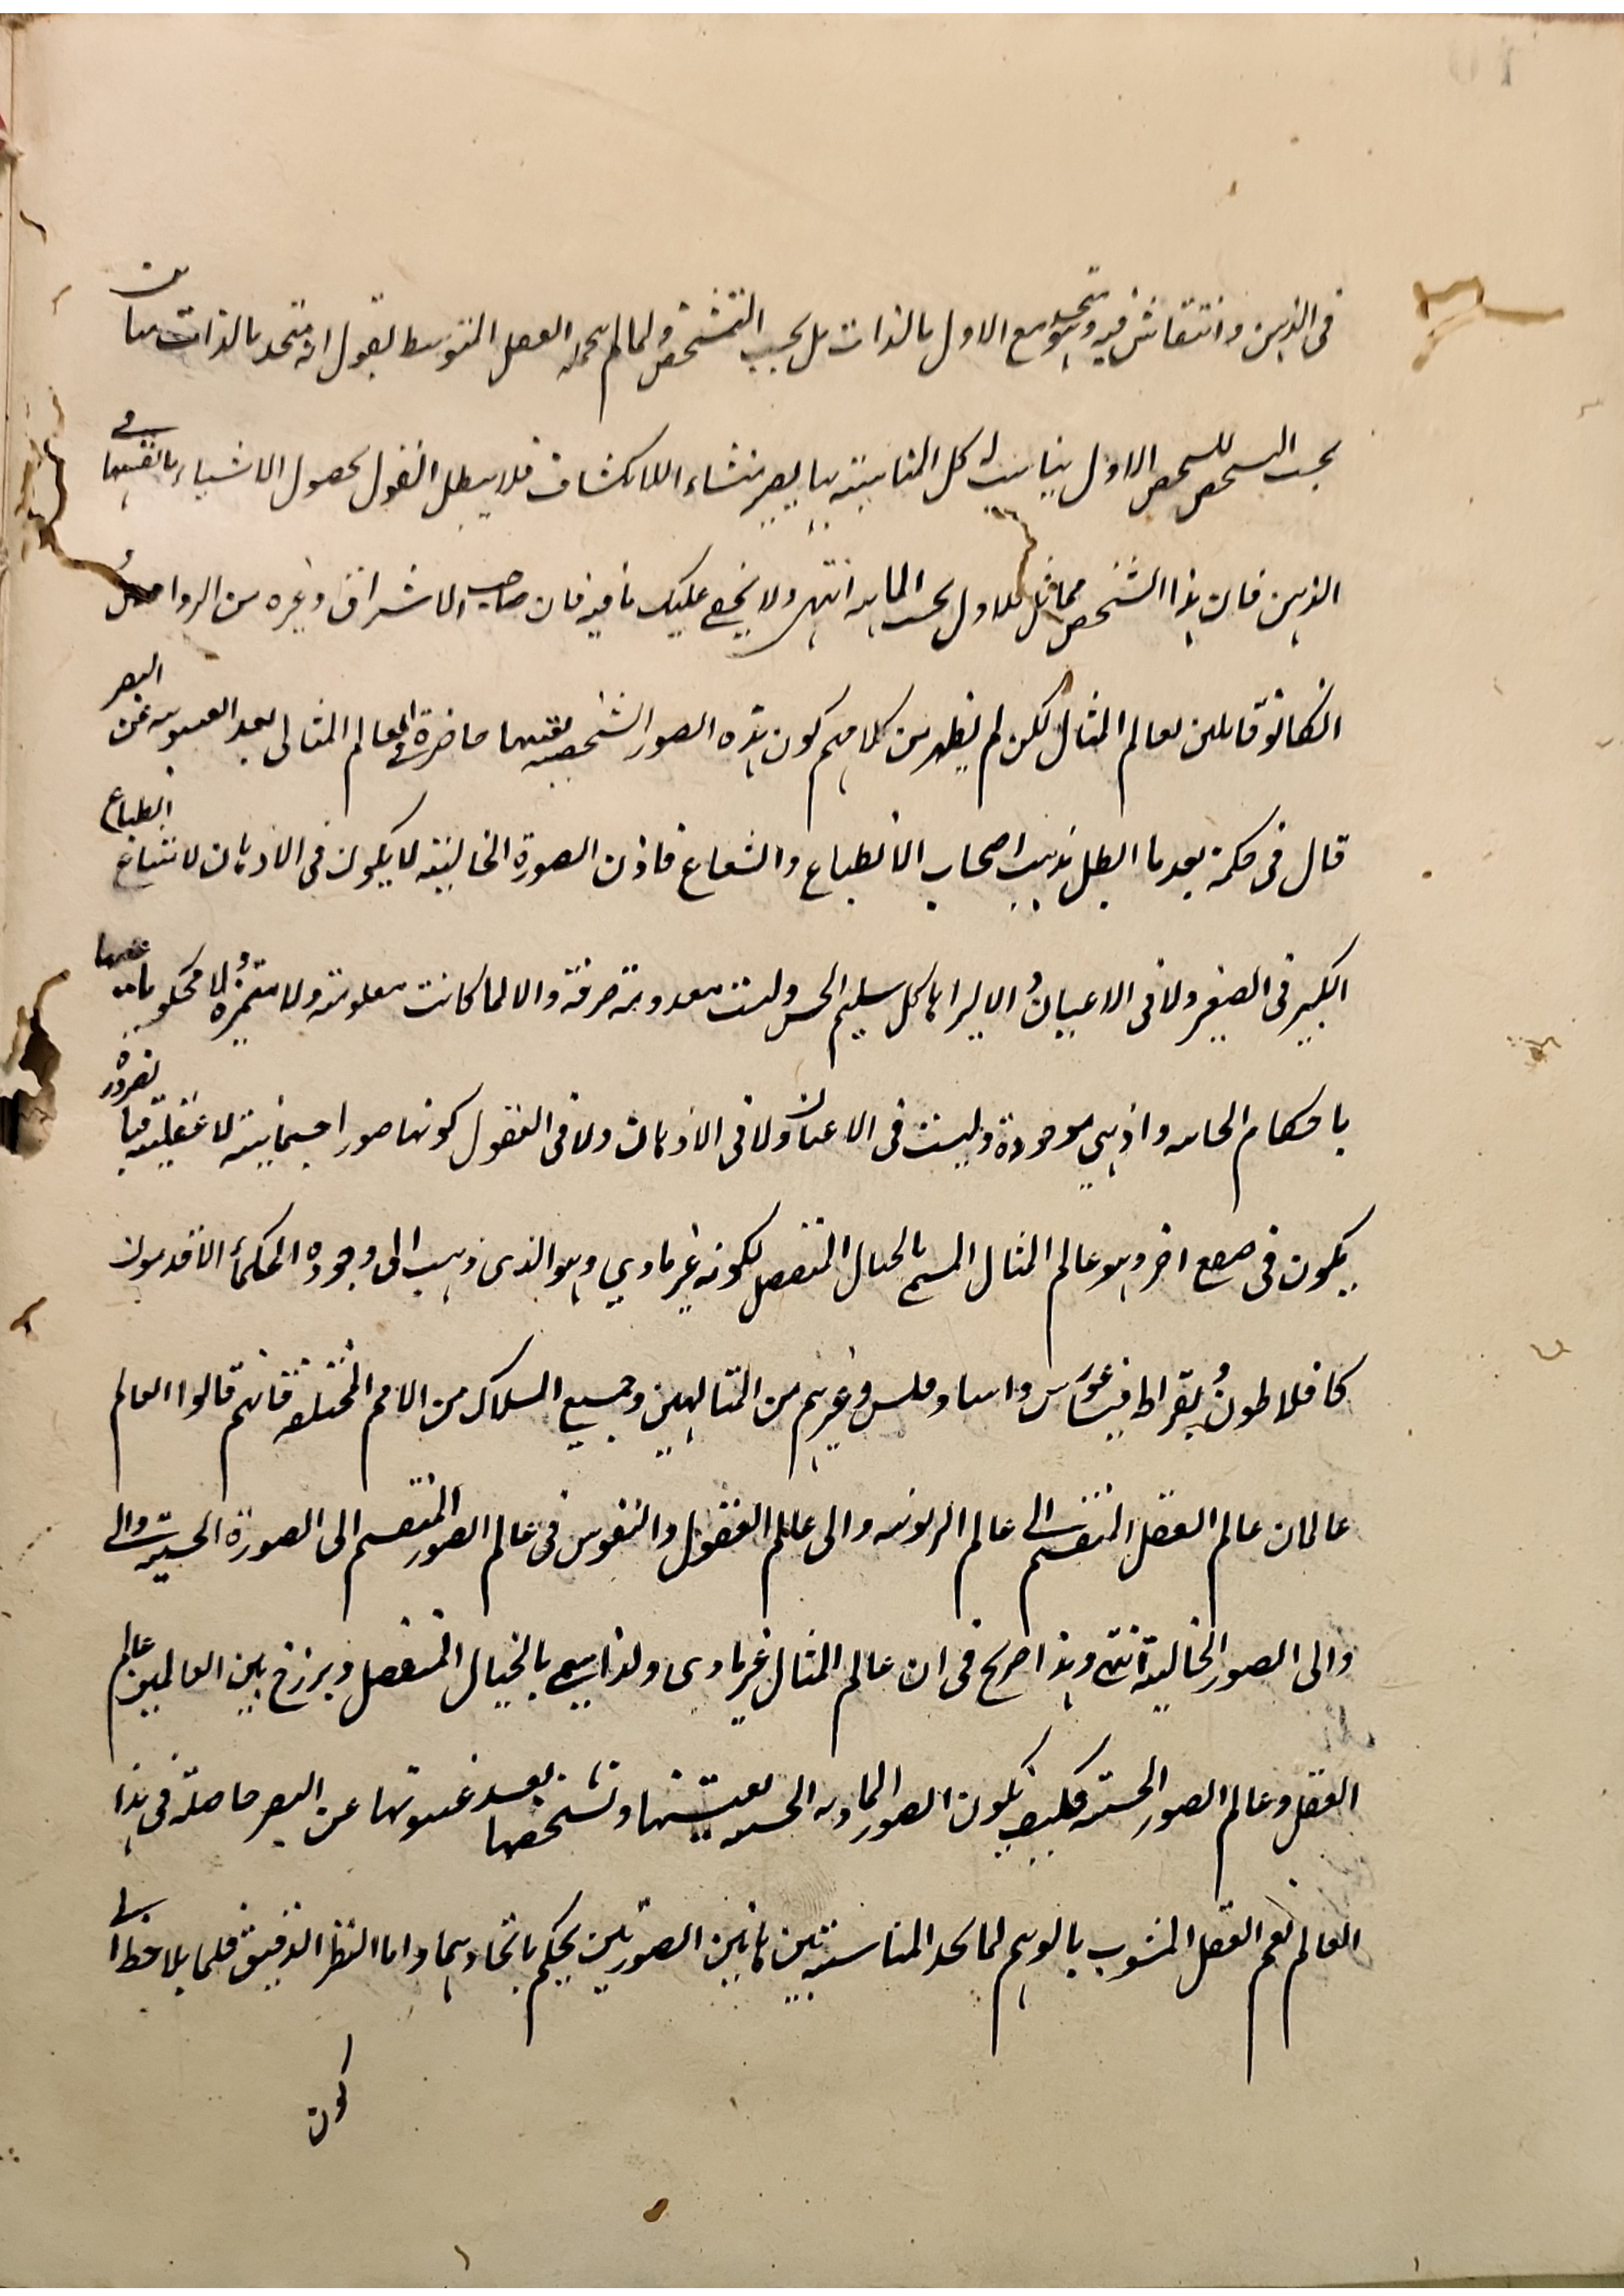 في الذهن وانتقاش فيه وهو متحد مع الاول بالذات بل بحسب التشخص ولما لم يحمله العقل المتوسط يقول انه متحد بالذات مباين
بحسب التشخص للشخص الاول يناسبه كل المناسبة بها يصير منشاء للانكشاف فلا يبطل القول بحصول الاشياء بانفسها في
الذهن فان هذا الشخص مماثل للاول بحسب الماهية انتهى ولا يخفى عليك ما فيه فان صاحب الاشراق وغيره من الرواقين
ان كانوا قايلين بعالم المثال لكن لم يظهر من كلامهم كون هذه الصور الشخصية بعينها حاضرة في العالم المثالي بعد الغيبوبة عن البصر
قال في حكمة بعد ما ابطل مذهب اصحاب الانطباع والشعاع فاذن الصورة الخيالية لا يكون في الاذهان لامتناع انطباع
الكبير في الصغير ولا في الاعيان والا ليراها كل سليم الحس وليست معدومة صرفة والا لما كانت معلومة ولا متميزة ولا محكوما عليها
باحكام الحاسه واذ هي موجودة وليست في الاعيان ولا في الاذهان ولا في العقول كونها صورا جسمانية لا عقلية فبالضرورة
يكون في صقع اخر وهو عالم المثال المسمى بالخيال المنفصل لكونه غير مادي وهو الذي ذهب الى وجوده الحكماء الاقدمون
كافلاطون وبقراط وفيثاغورس وانباذقلس وغيرهم من المتالهين وجميع السلاك من الامم المختلفة فانهم قالوا العالم
عالمان عالم العقل المنقسم الى عالم الربوبيه والى عالم العقول والنفوس في عالم الصور المنقسم الى الصورة الحسية والى
والى الصور الخيالية انتهى وهذا صريح في ان عالم المثال غير مادي ولذا يسمى بالخيال المنفصل وبرزخ بين العالمين عالم
العقل وعالم الصور الحسية فكيف يكون الصور الماديه الحسيه بعينها وتشخصها بعد غيبوبتها عن البصر حاصلة في هذا
العالم نعم العقل المشوب بالوهم لما يجد المناسبة بين هاتين الصورتين يحكم باتحادهما واما النظر الدقيق فلما يلاحظ
كون